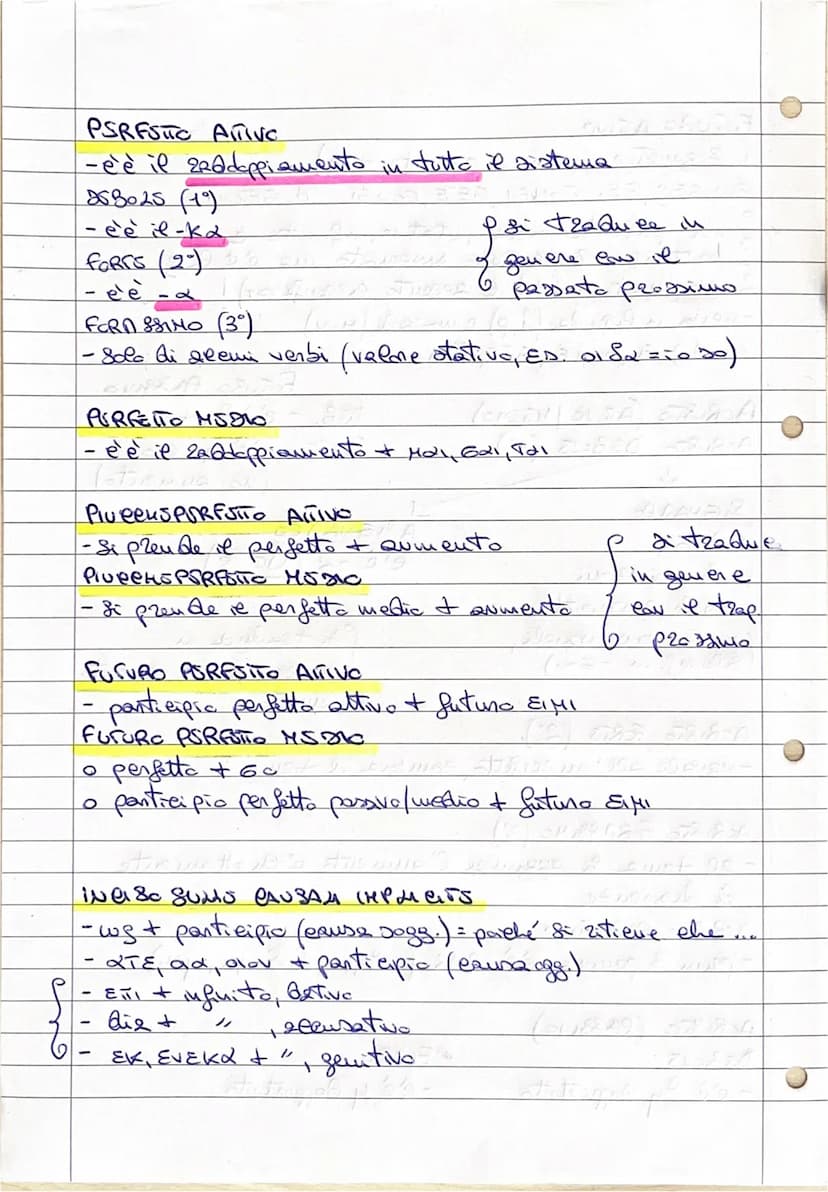 PERFETTO ATTIVO
- c'è il raddoppiamento in tutto il sistema
DEBOLE (1°)
- c'è il -κα
FORTE (2°)
- c'è -α
si traduce in
genere con il
passato prossimo
FORTISSIMO (3°)
- solo di alcuni verbi (valore stativo, ES. οιδα = io so)
PERFETTO MEDIO
- c'è il raddoppiamento + μαι, σαι, ται
PIUCCHEPERFETTO ATTIVO
- si prende il perfetto + aumento
PIUCCHEPERFETTO MEDIO
- si prende il perfetto medio + aumento
si traduce
in genere
con il trap.
prossimo
FUTURO PERFETTO ATTIVO
- participio perfetto attivo + futuro ειμι
FUTURO PERFETTO MEDIO
o perfetto + σο
o participio perfetto passivo/medio + futuro ειμι
CAUSALI IMPLICITE
- ως + participio (causa sogg.) = poiché si ritiene che ...
- ατε, οια, οιον + participio (causa ogg.)
- επι + infinito, dativo
- δια + " , accusativo
- εκ, ενεκα + ", genitivo